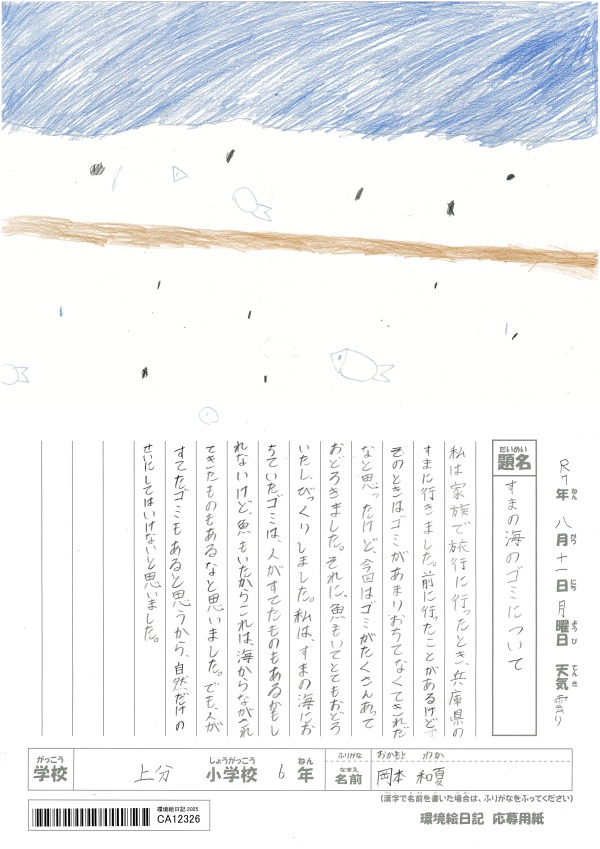 R7年 八月十一日 月曜日 天気 雲り
ねん がつ にち ようび てんき
だいめい
題名 すまの海のゴミについて
私は家族で旅行に行ったとき、兵庫県の
すまに行きました。前に行ったことがあるけどす
そのときはゴミがあまりおちてなくてきれだ
なと思ったけど、今回はゴミがたくさんあって
おどろきました。それに、魚もいてとてもおどろ
いたし、びっくりしました。私は、すまの海にお
ちていたゴミは、人がすてたものもあるかもし
れないけど、魚もいたからこれは、海からながされ
てきたものもあるなと思いました。でも、人が
すてたゴミもあると思うから、自然だけの
せいにしてはいけないと思いました。
がっこう
学校 上分 小学校 6年
しょうがっこう ねん
ふりがな おかもと わか
なまえ
名前 岡本 和夏
(漢字で名前を書いた場合は、ふりがなをふってください)
環境絵日記 2025
CA12326
環境絵日記 応募用紙